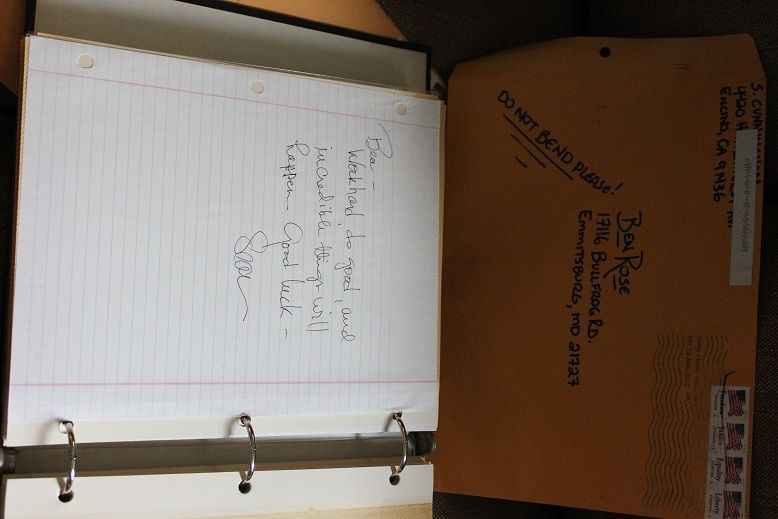 Ben –
Work hard, do good, and
incredible things will
happen. Good luck –
S.
ENCINO, CA 91436
DO NOT BEND PLEASE!
BEN ROSE
17116 BULLFROG RD.
EMMITSBURG, MD 21727
Freedom
Justice
Equality
Liberty